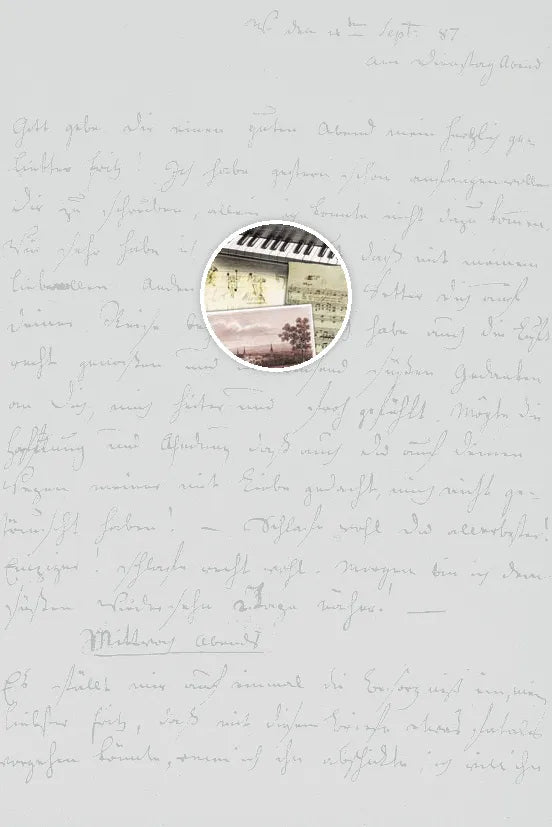 den 18ten Sept. 87
am Dienstag Abend
Gott gebe Dir einen guten Abend mein herzlich ge-
liebter Fritz! Ich habe gestern schon anfangen wollen
Dir zu schreiben, allein ich konnte nicht dazu kommen.
sehr habe daß mit meinem
Wetter Dich auf
Deiner Reise habe auch die Luft
recht genossen und süßen Gedanken
an Dich, mich heiter und gefühlt. Möge die
Hoffnung und Ahndung daß auch Du auf Deinen
Wegen meiner mit Liebe gedacht, mich nicht ge-
täuscht haben! — Schlafe wohl Du allerbester!
Einziger! schlafe recht wohl. Morgen bin ich dem
süßen Wiedersehn 2 Tage näher! —
Mittwoch Abends
Es fällt mir auf einmal die Besorgniß ein, mein
liebster Fritz, daß mit diesem Briefe etwas fatales
vorgehen könnte, wenn ich ihn abschickte, ich will ihn